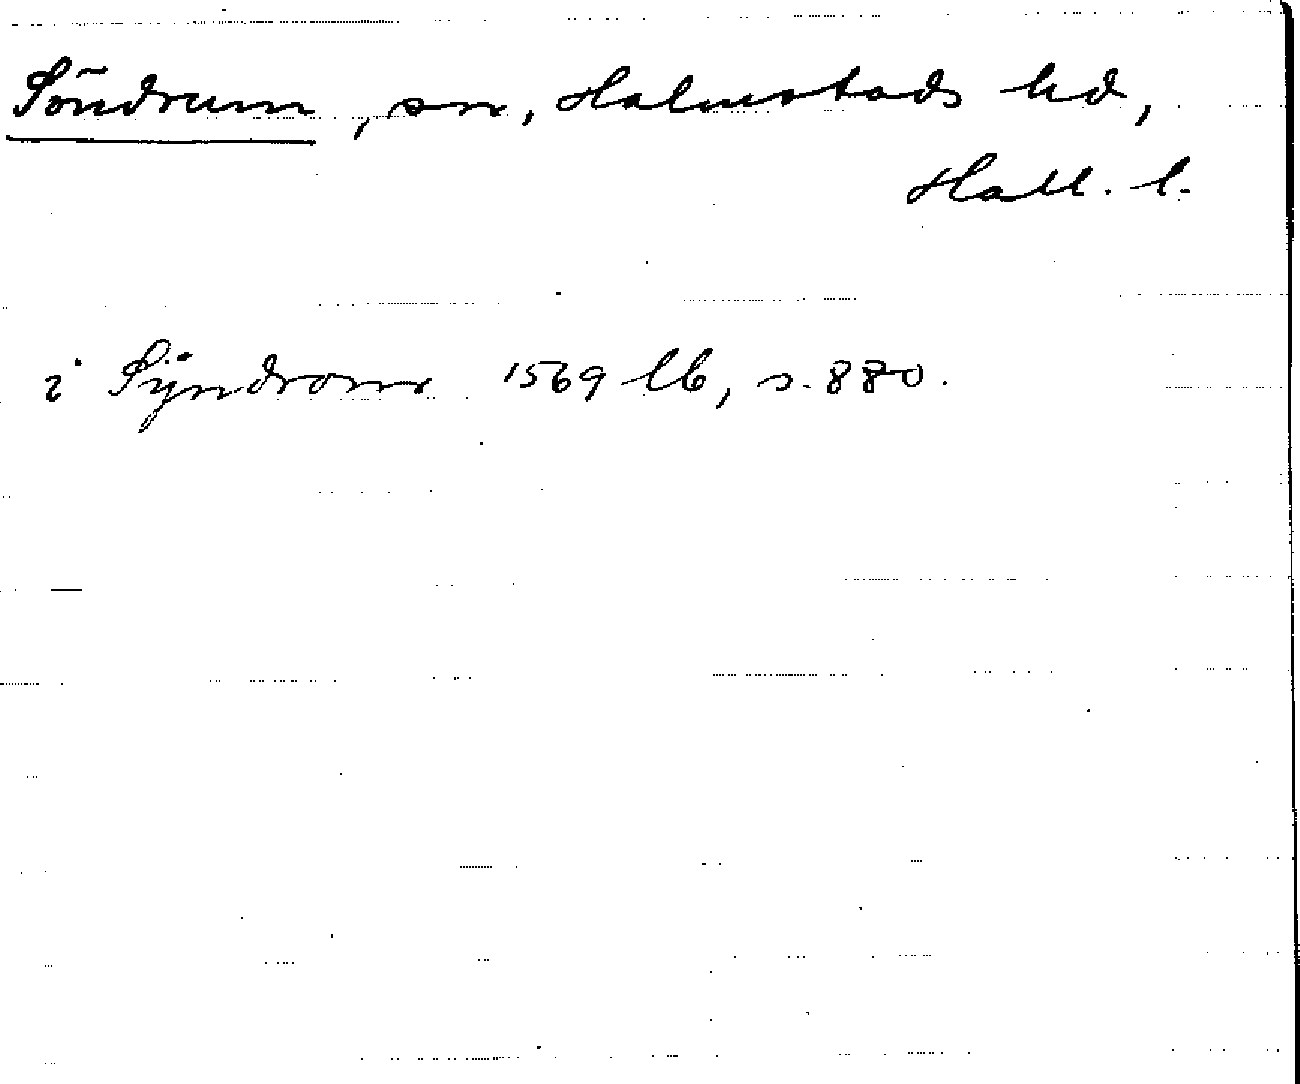 Söndrum, sn, Halmstads hd,
Hall. l.
i Sÿndrome 1569 lb, s. 880.